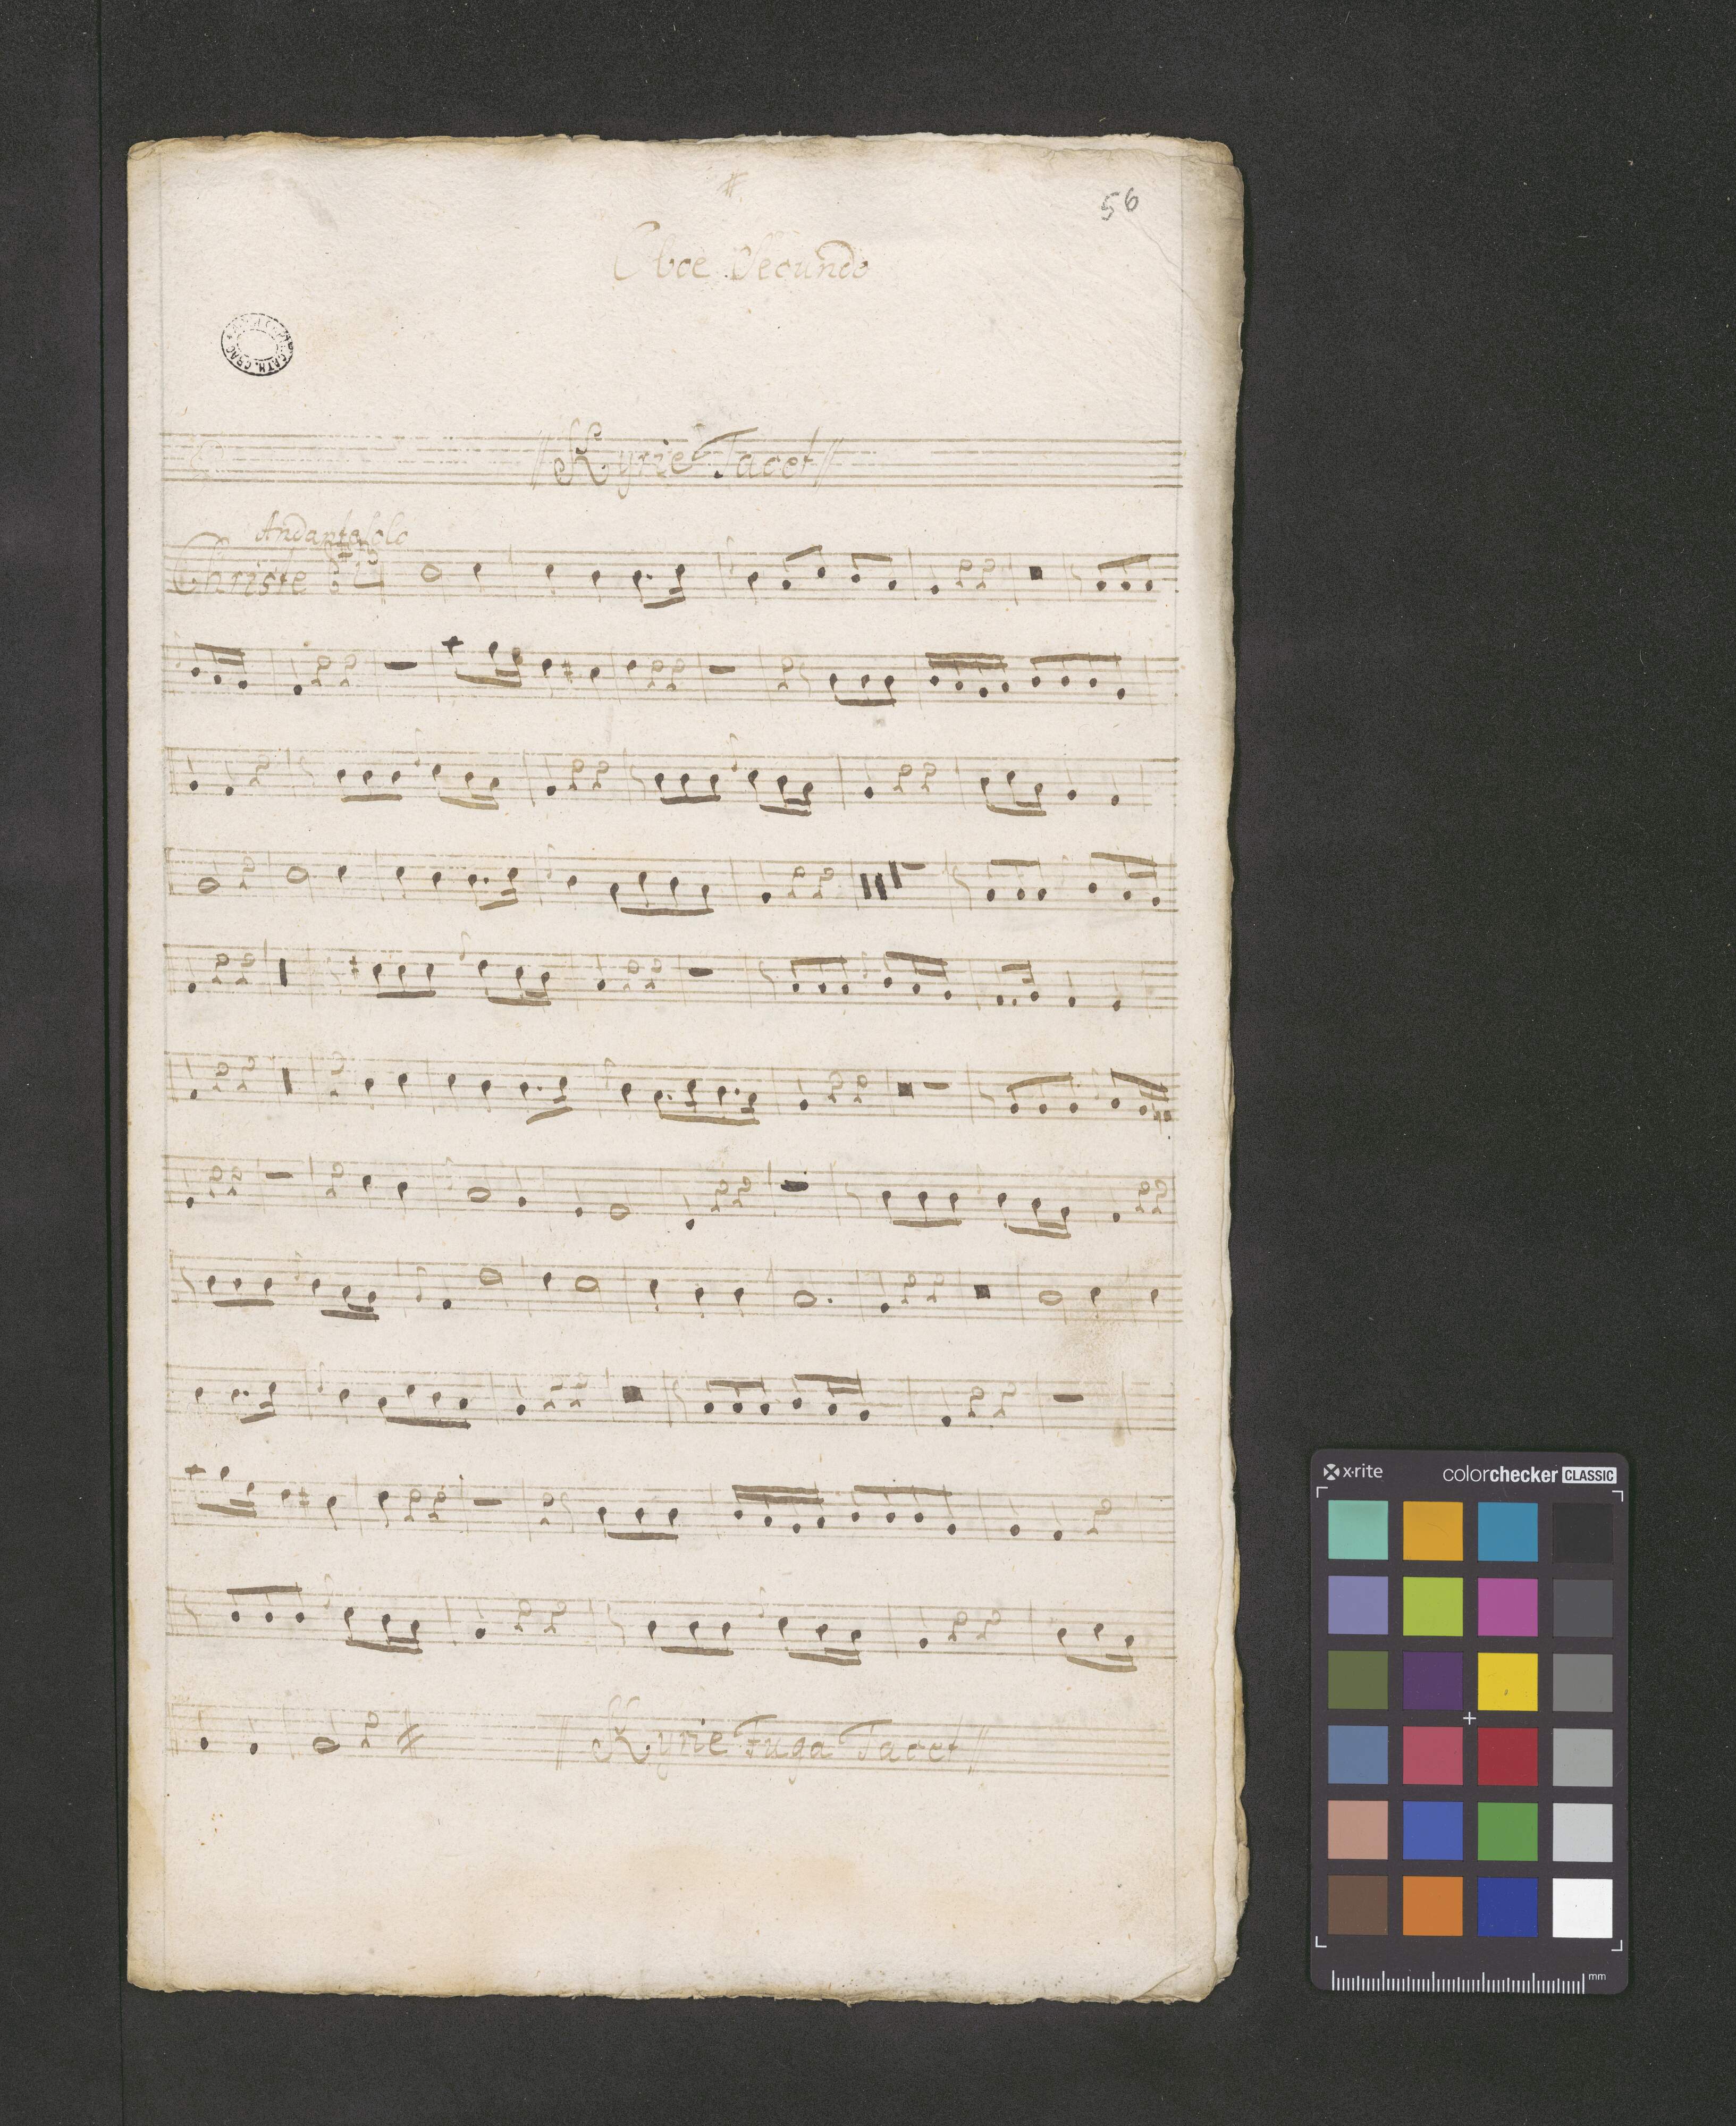 56
Oboe Secundo
Kyrie Tacet
Andante Solo
Christe
Kyrie Fuga Tacet
x-rite
colorchecker CLASSIC
mm